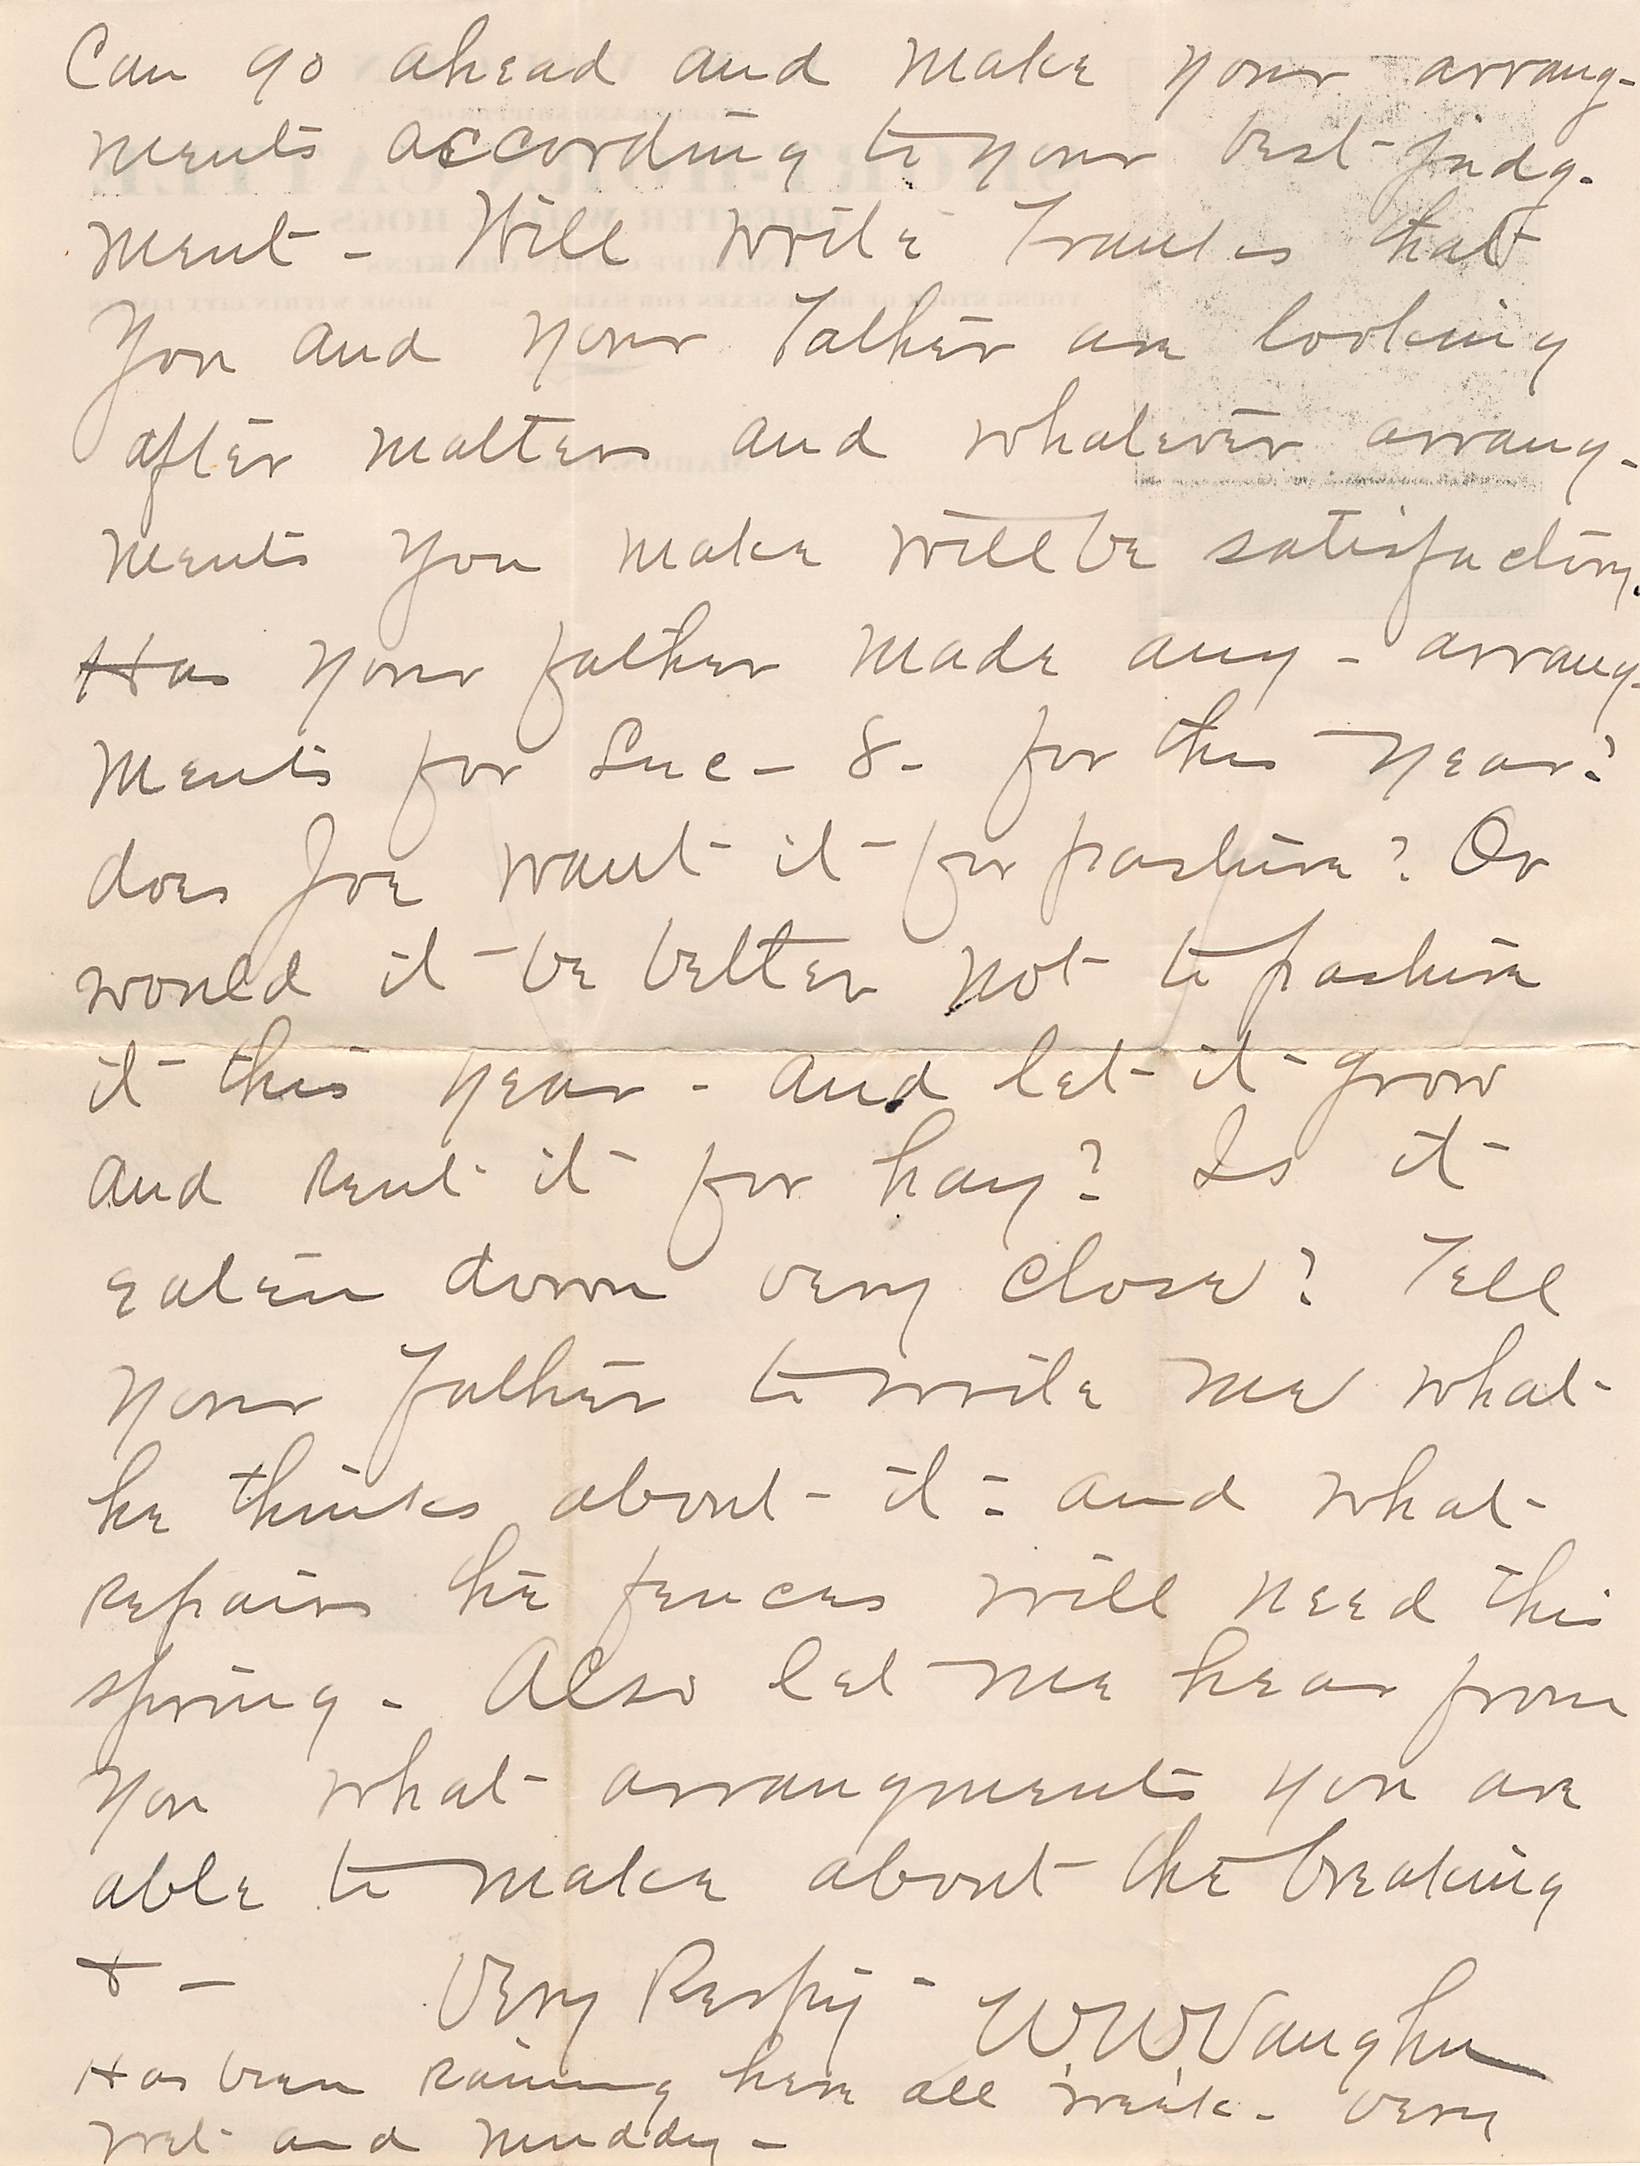 Can go ahead and make your arrang-
ments according to your best judg-
ment - Will write Franks that
you and your Father are looking
after matters and whatever arrang-
ments you make will be satisfactory.
Has your father made any - arrang-
ments for Sec - 8 - for this year?
does Joe want it for pasture? Or
would it be better not to pasture
it this year - and let it grow
and rent it for hay? Is it
eaten down very close? Tell
your Father to write me what
he thinks about it - and what
repairs the fences will need this
spring - Also let me hear from
you what arrangments you are
able to make about the breaking
+ - Very Respy - W.W. Vaughn
Has been raining here all week - very
wet and muddy -